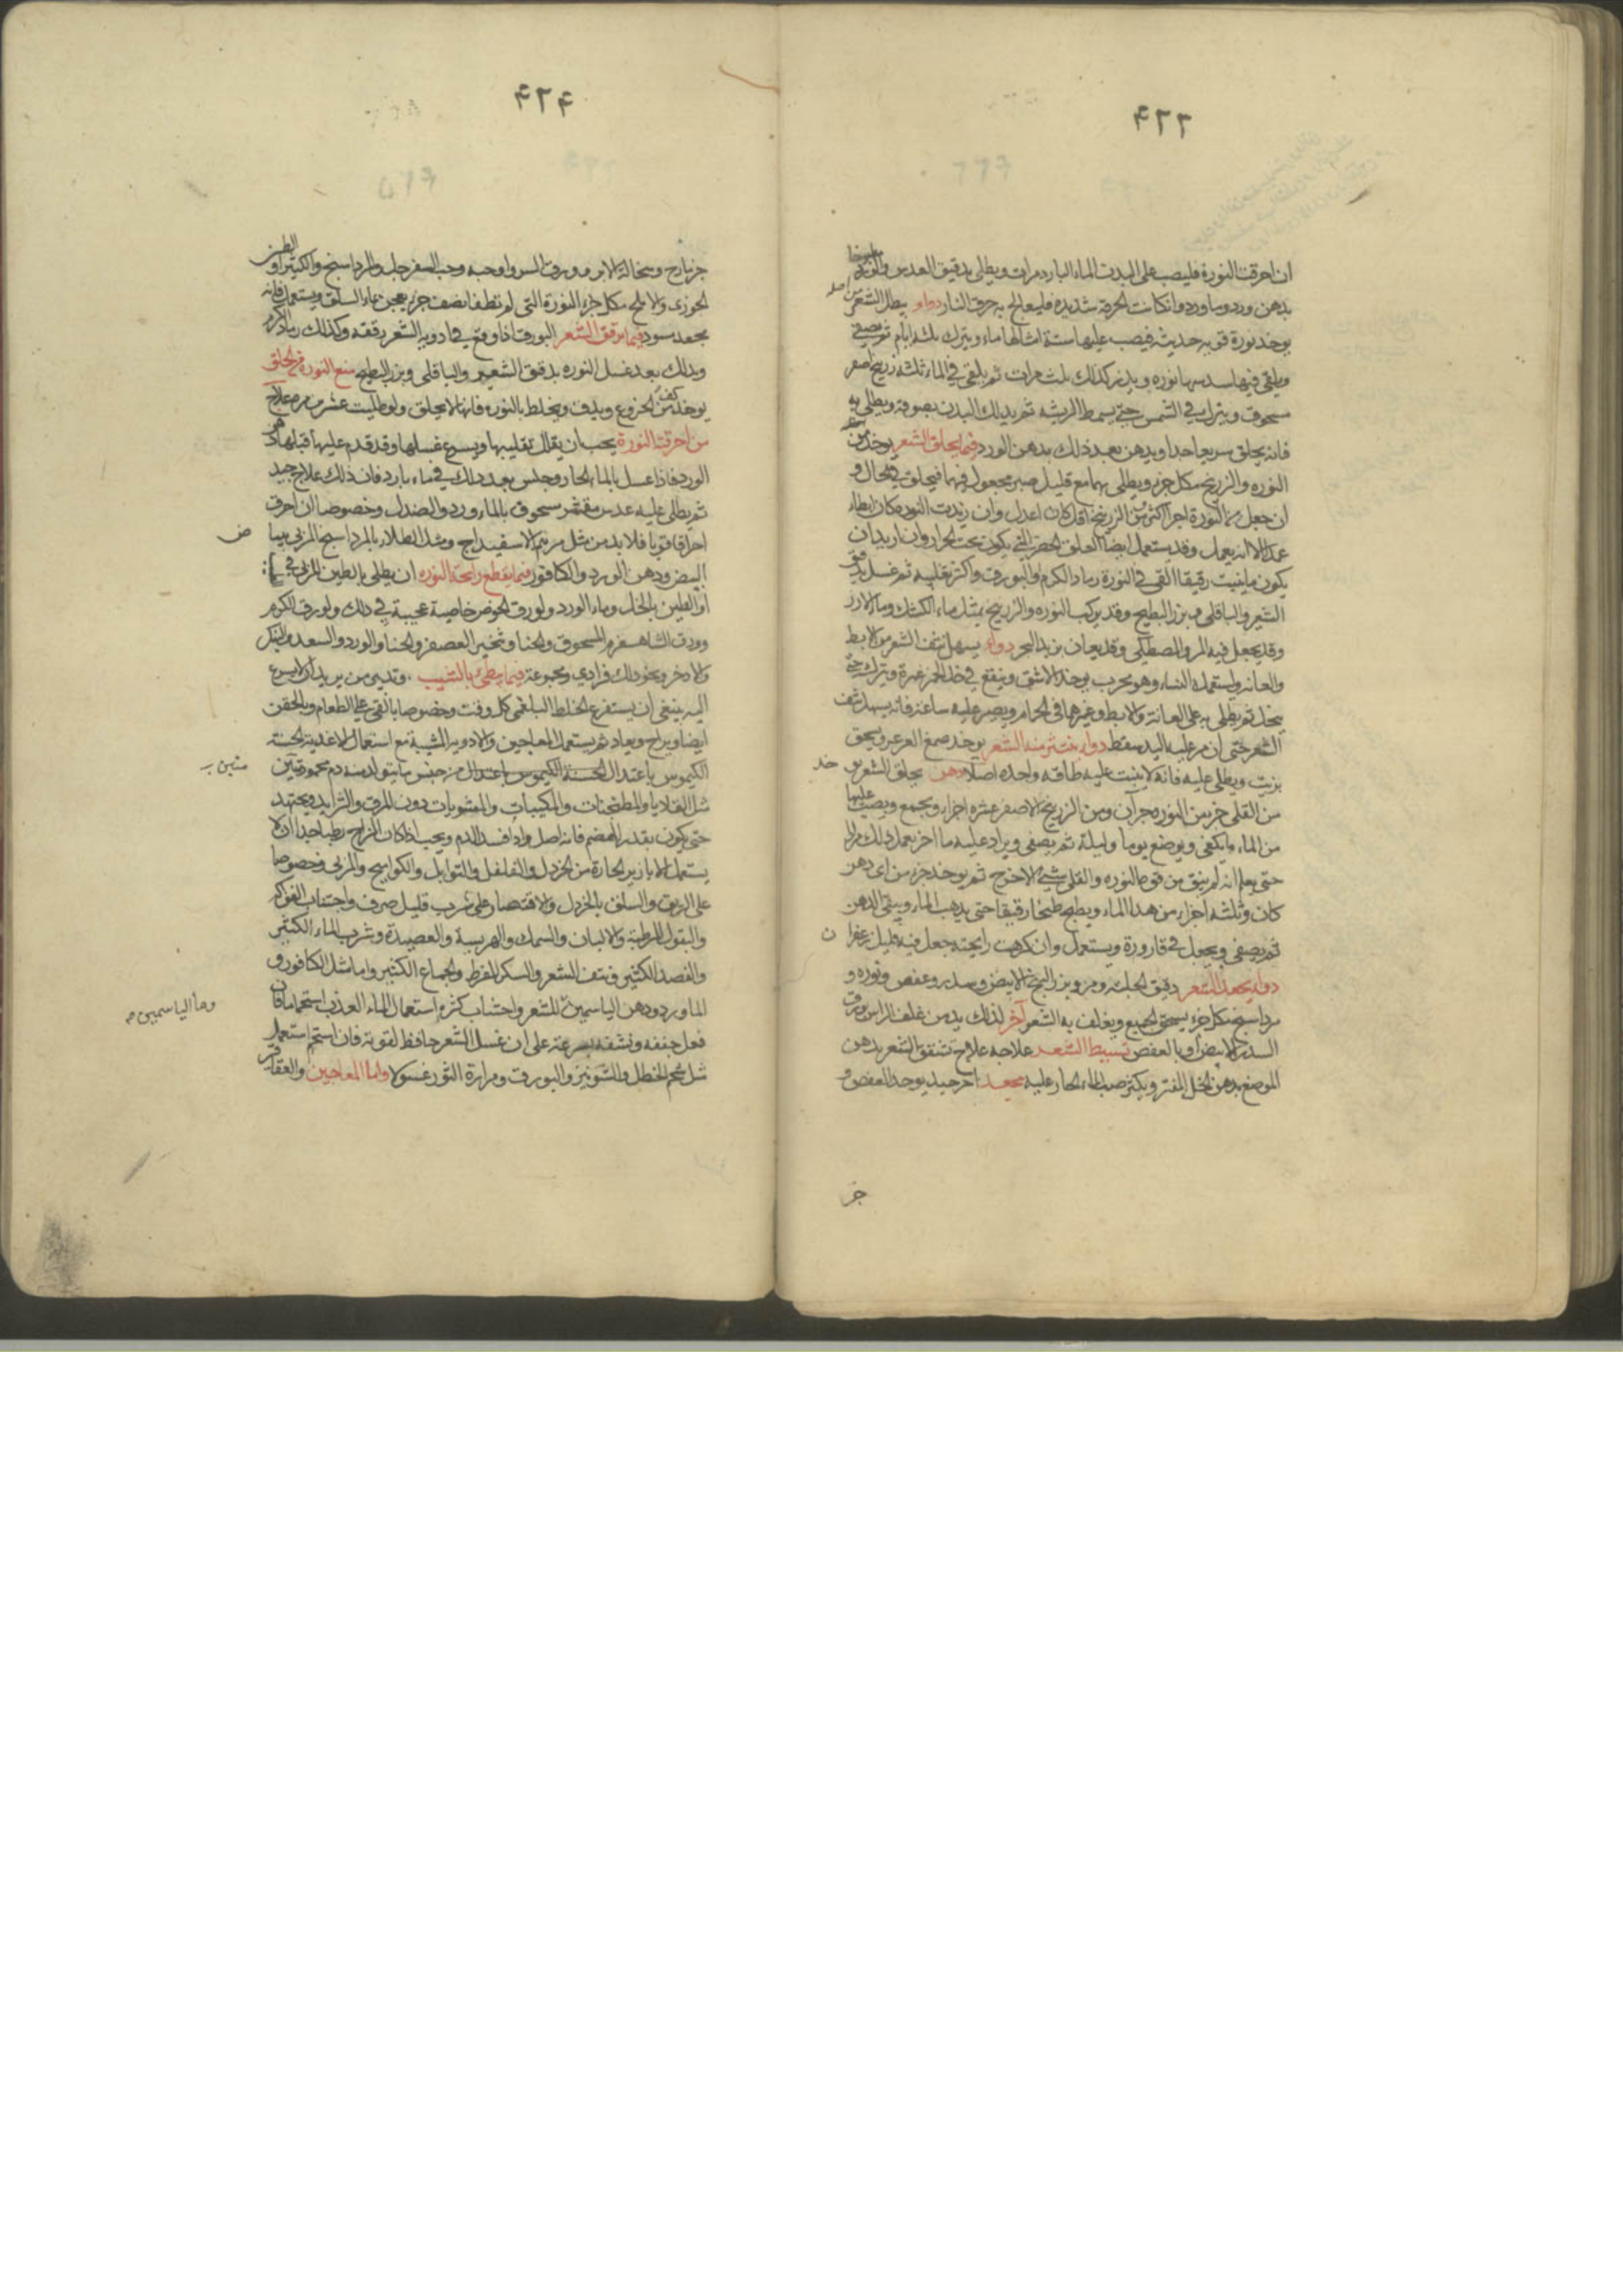 ٤٢٣
ان احرقت النورة فليصب على البدن الماء البارد مرات ويطلى بدقيق العدس والورد
بدهن ورد وماورد وان كانت الحرقة شديدة فليعالج به حرق النار دواء يبطل الشعر
يوخذ نورة قويه حديثه فيصب عليها ستة امثالها ماء ويترك ثلثه ايام ثم يصفى
ويلقى فيها سدسها نوره ويدبر كذلك ثلث مرات ثم يلقى في الماء ثلثه زرنيخ اصفر
مسحوق ويترك في الشمس حتى يسمط الريشه ثم يدلك البدن بصوفة ويطلى به
فانه يحلق سريعا جدا ويدهن بعد ذلك بدهن الورد فيما يحلق الشعر يوخذ من
النوره والزرنيخ مكل جزء ويطلى بهما مع قليل صبر مجعول فيهما فيحلق في الحال و
ان جعل من النورة اجزا اكثر من الزرنيخ اقل كان اعدل وان زيدت النوره كان ابطاء
عملا الا انه يعمل وقد يستعمل ايضا العلق الخضر التي يكون تحت الجرار وان اريد ان
يكون ما ينبت رقيقا القى في النورة رماد الكرم او البورق واكثر تقليبه ثم غسل بدقيق
الشعير والباقلى وبزر البطيخ وقد يركب النوره والزرنيخ بمثل ماء الكشك وماء الارز
وقد يجعل فيه المر والمصطكى وقد يعان بزبد البحر دواء يسهل نتف الشعر من الابط
والعانه واستعمله النساء وهو مجرب يوخذ الاشق وينقع في خل الخمر غمرة ويترك حتى
ينحل ثم يطلى به على العانة والابط وغيرها في الحمام ويصبر عليه ساعة فانه يسهل نتف
الشعر حتى ان مر عليه اليد سقط دواء ينتثر منه الشعر يوخذ صمغ العرعر ويسحق
بزيت ويطلى عليه فانه لا ينبت عليه طاقه واحده اصلا دهن يحلق الشعر يوخذ
من القلى جز ومن النوره جزآن ومن الزرنيخ الاصفر عشره اجزاء ويجمع ويصب عليها
من الماء ما يكفى ويوضع يوما وليلة ثم يصفى ويزاد عليه ما اخر يعمل ذلك مرارا
حتى يعلم انه لم يبق من قوة النوره والقلى شيء الا خرج ثم يوخذ جزء من اى دهن
كان وثلثه اجزاء من هذا الماء ويطبخ طبخا رقيقا حتى يذهب الماء ويبقى الدهن
ثم يصفى ويجعل في قارورة ويستعمل وان كرهت رايحته جعل فيه قليل زعفران
دواء يجعد الشعر دقيق الحلبه ومر وبزر البنج الابيض وسدر وعفص ونوره و
مرداسنج مكل جزء يسحق الجميع ويغلف به الشعر آخر لذلك يدمن غلف الراس بورق
السدر الابيض او بالعفص تسبيط الشعر علاجه علاج تشقق الشعر بدهن
الموضع بدهن الخل المفتر ويكثر صب الماء الحار عليه مجعد اخر جيد يوخذ العفص و
جز
٤٢٤
جزمازج ونخالة الابر وورق السرو او حبه وحب السفرجل والمرداسنج والكثيرا والطين
الخوزى والاملج مكل جزء النورة التى لم تطفا نصف جزء يعجن بماء السلق ويستعمل فانه
يجعد مسود فيما يرقق الشعر البورق اذا وقع في ادوية الشعر رققه وكذلك رماد الكرم
ويدلك بعد غسل النوره بدقيق الشعير والباقلى وبزر البطيخ منع النورة عن الحلق
يوخذ كف الخروع ويدق ويخلط بالنوره فانها لا يحلق ولو طليت عشر مره علاج
من احرقته النورة يجب ان يقال تقليبها ويسرع غسلها وقد قدم عليها قبلها دهن
الورد فاذا غسل بالماء الحار وجلس بعد ذلك في ماء بارد فان ذلك علاج جيد
ثم يطلى عليه عدس مقشر مسحوق بالماء ورد والصندل وخصوصا ان احرق
احراقا قويا فلا بد من مثل مرهم الاسفيداج ومثل الطلاء بالمرداسنج المربى ببياض
البيض ودهن الورد والكافور فيما يقطع رايحة النوره ان يطلى بالطين المربى في
او الطين بالخل وماء الورد ولورق الخوخ خاصية عجيبة في ذلك ولورق الكرم
وورق الشاهسفرم المسحوق والحنا وثجير العصفر والحنا والورد والسعد والسك
والاذخر ونحو ذلك فرادى ومجموعة فيما يبطئ بالشيب وقد يبن من يريد ان لا يسرع
اليه ينبغى ان يستفرغ الخلط البلغمى كل وقت وخصوصا بالقى على الطعام وبالحقن
ايضا ويراح ويعاد ثم يستعمل المعاجين والادويه المشيبة مع استعمال الاغذيه الحسنة
الكيموس باعتدال الحسنة الكيموس باعتدال من جنس ما يتولد منه دم محمود متين
مثل القلايا والمطجنات والمكببات والمشويات دون المرق والثرايد ويجتهد
حتى يكون بقدر الهضم فانه اصل واذا فسد الدم ويجب اذا كان المزاج رطبا جدا ان لا
يستعمل الابازير الحارة من الخردل والفلفل والتوابل والكواميخ والمرى وخصوصا
على الريق والسلق بالخردل والاقتصار على شرب قليل صرف واجتناب الفواكه
والبقول المرطبة والالبان والسمك والهريسة والعصيدة وشرب الماء الكثير
والفصد الكثير ونتف الشعر والسكر المفرط والجماع الكثير واما مثل الكافور و
الماورد ودهن الياسمين للشعر واجتناب كثرة استعمال الماء العذب استحماما فان
وماء الياسمين
فعل جففه ونشفه بسرعة على ان غسل الشعر حافظ لقوته فان استحم استعمل
مثل شحم الحنظل والشونيز والبورق ومرارة الثور غسولا واما المعاجين والعقاقير